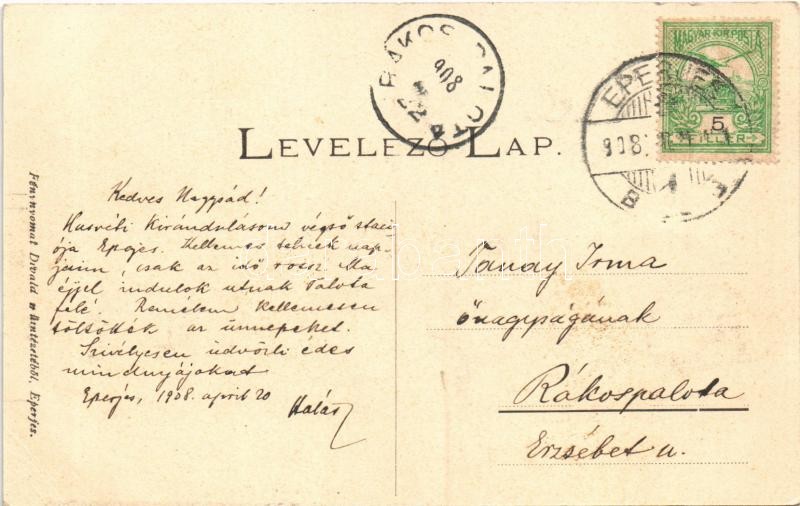 MAGYAR KIR. POSTA
5
FILLER
EPERJES
908
B
RÁKOSPALOTA
908
LEVELEZŐ LAP.
Kedves Nagysád!
Husvéti Kirándulásom végső stací-
ója Eperjes. Kellemes telnek nap-
jaim, csak az idő rossz. Ma
éjjel indulok utnak Palota
felé. Remélem Kellemesen
töltötték az ünnepeket.
Szivélyesen üdvözli édes
mindnyájokat
Eperjes, 1908. april 20
Halász
Tanay Irma
őnagyságának
Rákospalota
Erzsébet u.
Fénynyomat Divald műintézetéből, Eperjes.